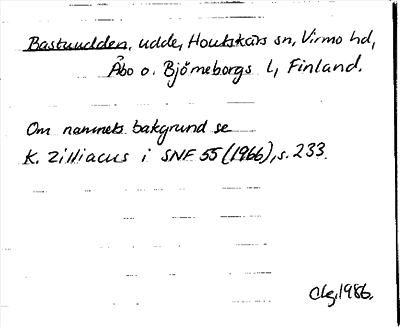 Bastuudden, udde, Houtskärs sn, Virmo hd,
Åbo o. Björneborgs l, Finland.
Om namnets bakgrund se
K. Zilliacus i SNF 55 (1966), s. 233.
1986.